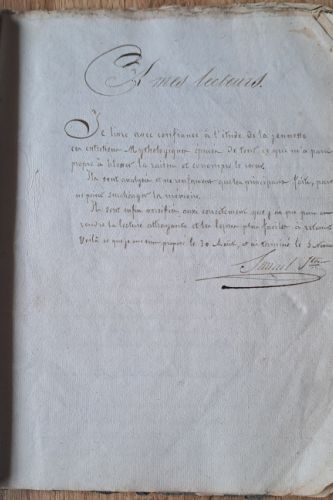 A mes lecteurs.
Je livre avec confiance à l'étude de la jeunesse
ces entretiens Mythologiques épurés de tout ce qui m'a paru
propre à blesser la raison et corrompre le cœur.
Ils sont analysés et ne renferment que les principaux faits, pour
ne point surcharger la mémoire.
Ils sont enfin aussi
rendre la lecture attrayante et les leçons plus faciles à retenir.
Voilà ce que je me suis proposé le 30 Août, et ai terminé le 3